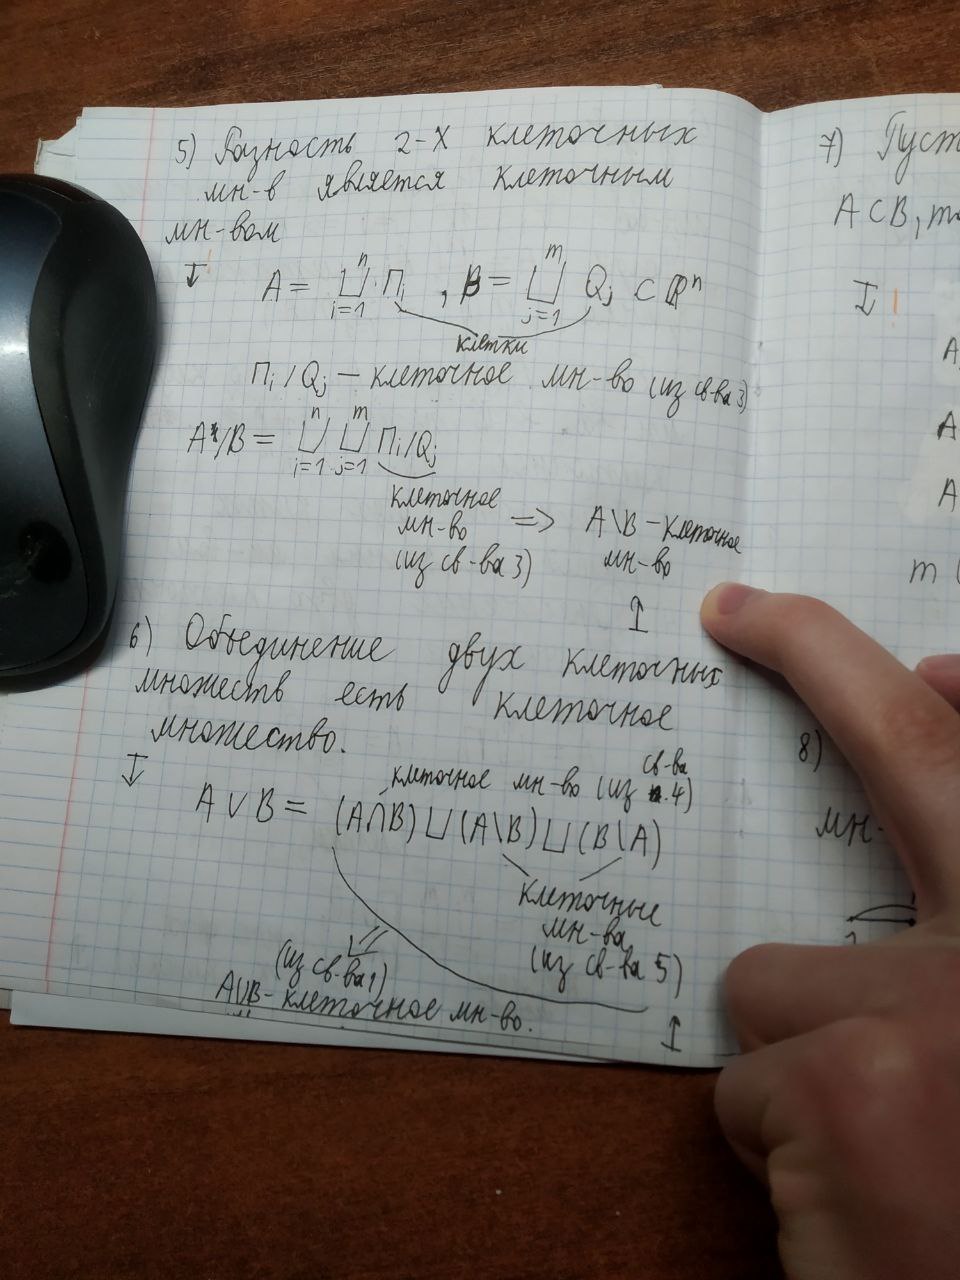 5) Разность 2-х клеточных
мн-в является клеточным
мн-вом
A = ⊔ Πᵢ , B = ⊔ Qⱼ ⊂ ℝⁿ
n m
i=1 j=1
клетки
Πᵢ / Qⱼ — клеточное мн-во (из св-ва 3)
n m
A/B = ⊔ ⊔ Πᵢ/Qⱼ
i=1 j=1
клеточное
мн-во
(из св-ва 3)
=> A\B - клеточное
мн-во
6) Объединение двух клеточных
множеств есть клеточное
множество.
клеточное мн-во (из св-ва 4)
A ∪ B = (A∩B) ⊔ (A\B) ⊔ (B\A)
клеточные
мн-ва
(из св-ва 5)
(из св-ва 1)
A∪B - клеточное мн-во.
7) Пуст
A ⊂ B, т
A
A
A
m (
8)
мн-